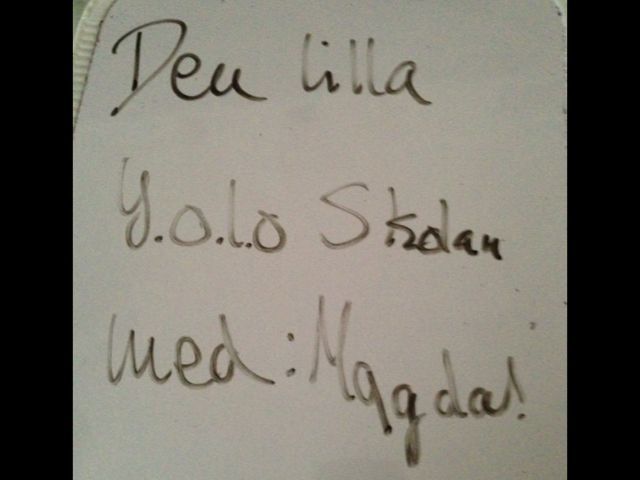 Den lilla
Y.o.l.o Skolan
med: Magda!